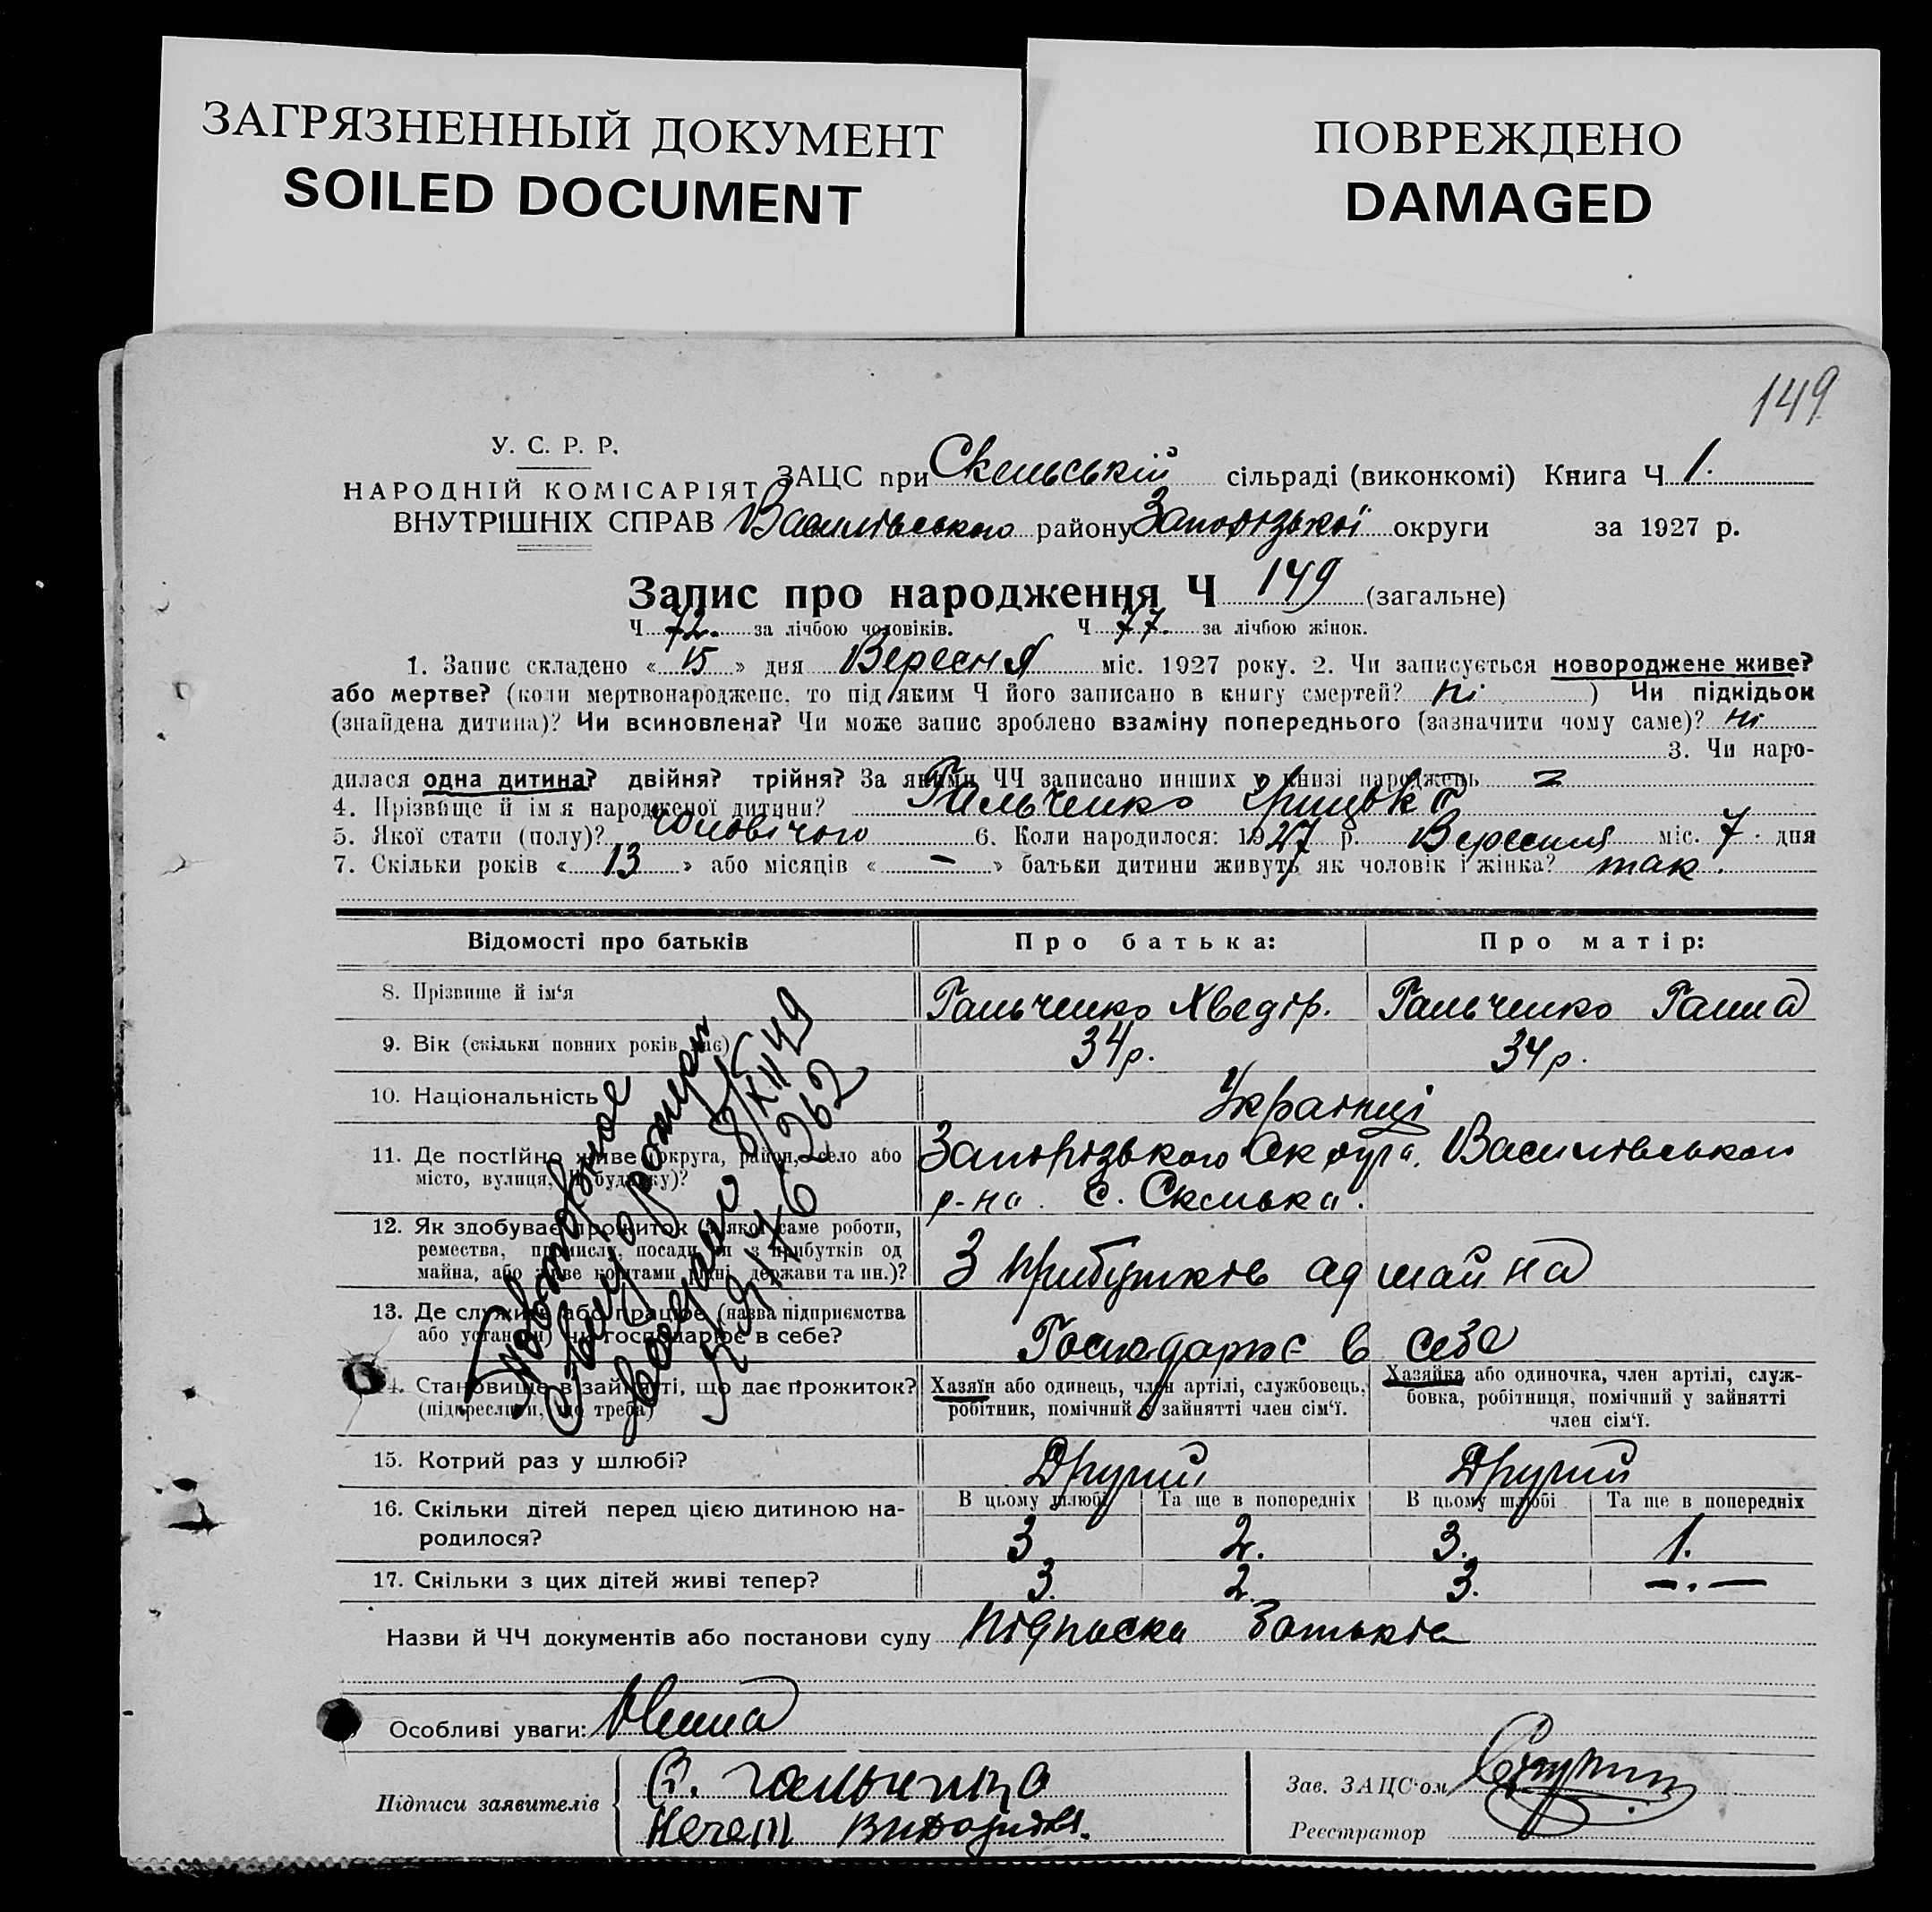 ЗАГРЯЗНЕННЫЙ ДОКУМЕНТ
SOILED DOCUMENT
ПОВРЕЖДЕНО
DAMAGED
149
У. С. Р. Р.
НАРОДНІЙ КОМІСАРІЯТ
ВНУТРІШНІХ СПРАВ
ЗАЦС при Скельській сільраді (виконкомі) Книга Ч 1.
Василівського району Запорізької округи за 1927 р.
Запис про народження Ч 149 (загальне)
Ч 72. за лічбою чоловіків. Ч 77. за лічбою жінок.
1. Запис складено « 15 » дня Вересня міс. 1927 року. 2. Чи записується новороджене живе?
або мертве? (коли мертвонароджене, то під яким Ч його записано в книгу смертей? ні ) Чи підкідьок
(знайдена дитина)? Чи всиновлена? Чи може запис зроблено взаміну попереднього (зазначити чому саме)? ні
3. Чи наро-
дилася одна дитина? двійня? трійня? За якими ЧЧ записано инших у книзі народжень
4. Прізвище й ім'я народженої дитини? Гальченко Грицько
5. Якої стати (полу)? чоловічого 6. Коли народилося: 1927 р. Вересня міс. 7 дня
7. Скільки років « 13 » або місяців « – » батьки дитини живуть як чоловік і жінка? так.
Відомості про батьків Про батька: Про матір:
8. Прізвище й ім'я Гальченко Хведір. Гальченко Ганна
9. Вік (скільки повних років має) 34 р. 34 р.
10. Національність Українці
11. Де постійно живе (округа, район, село або Запорізького Округа. Василівського
місто, вулиця, Ч будинку)? р-на. с. Скелька.
12. Як здобуває прожиток (з якої саме роботи,
ремества, промислу, посади чи з прибутків од
майна, або живе коштами рідні, держави та ин.)? З прибутків од майна
13. Де служить або працює (назва підприємства
або установи) чи господарює в себе? Господарює в себе
14. Становище в зайнятті, що дає прожиток? Хазяїн або одинець, член артілі, службовець, Хазяйка або одиночка, член артілі, служ-
(підкреслити, що треба) робітник, помічний у зайнятті член сім'ї. бовка, робітниця, помічний у зайнятті
член сім'ї.
15. Котрий раз у шлюбі? Другий Другий
16. Скільки дітей перед цією дитиною на- В цьому шлюбі Та ще в попередніх В цьому шлюбі Та ще в попередніх
родилося? 3 2. 3. 1.
17. Скільки з цих дітей живі тепер? 3. 2. 3. –.–
Повторное
выдано 8/XII 49
Назви й ЧЧ документів або постанови суду підписка батьків
Особливі уваги: Нема
Підписи заявителів
Гальченко
Зав. ЗАЦС'ом
Реєстратор